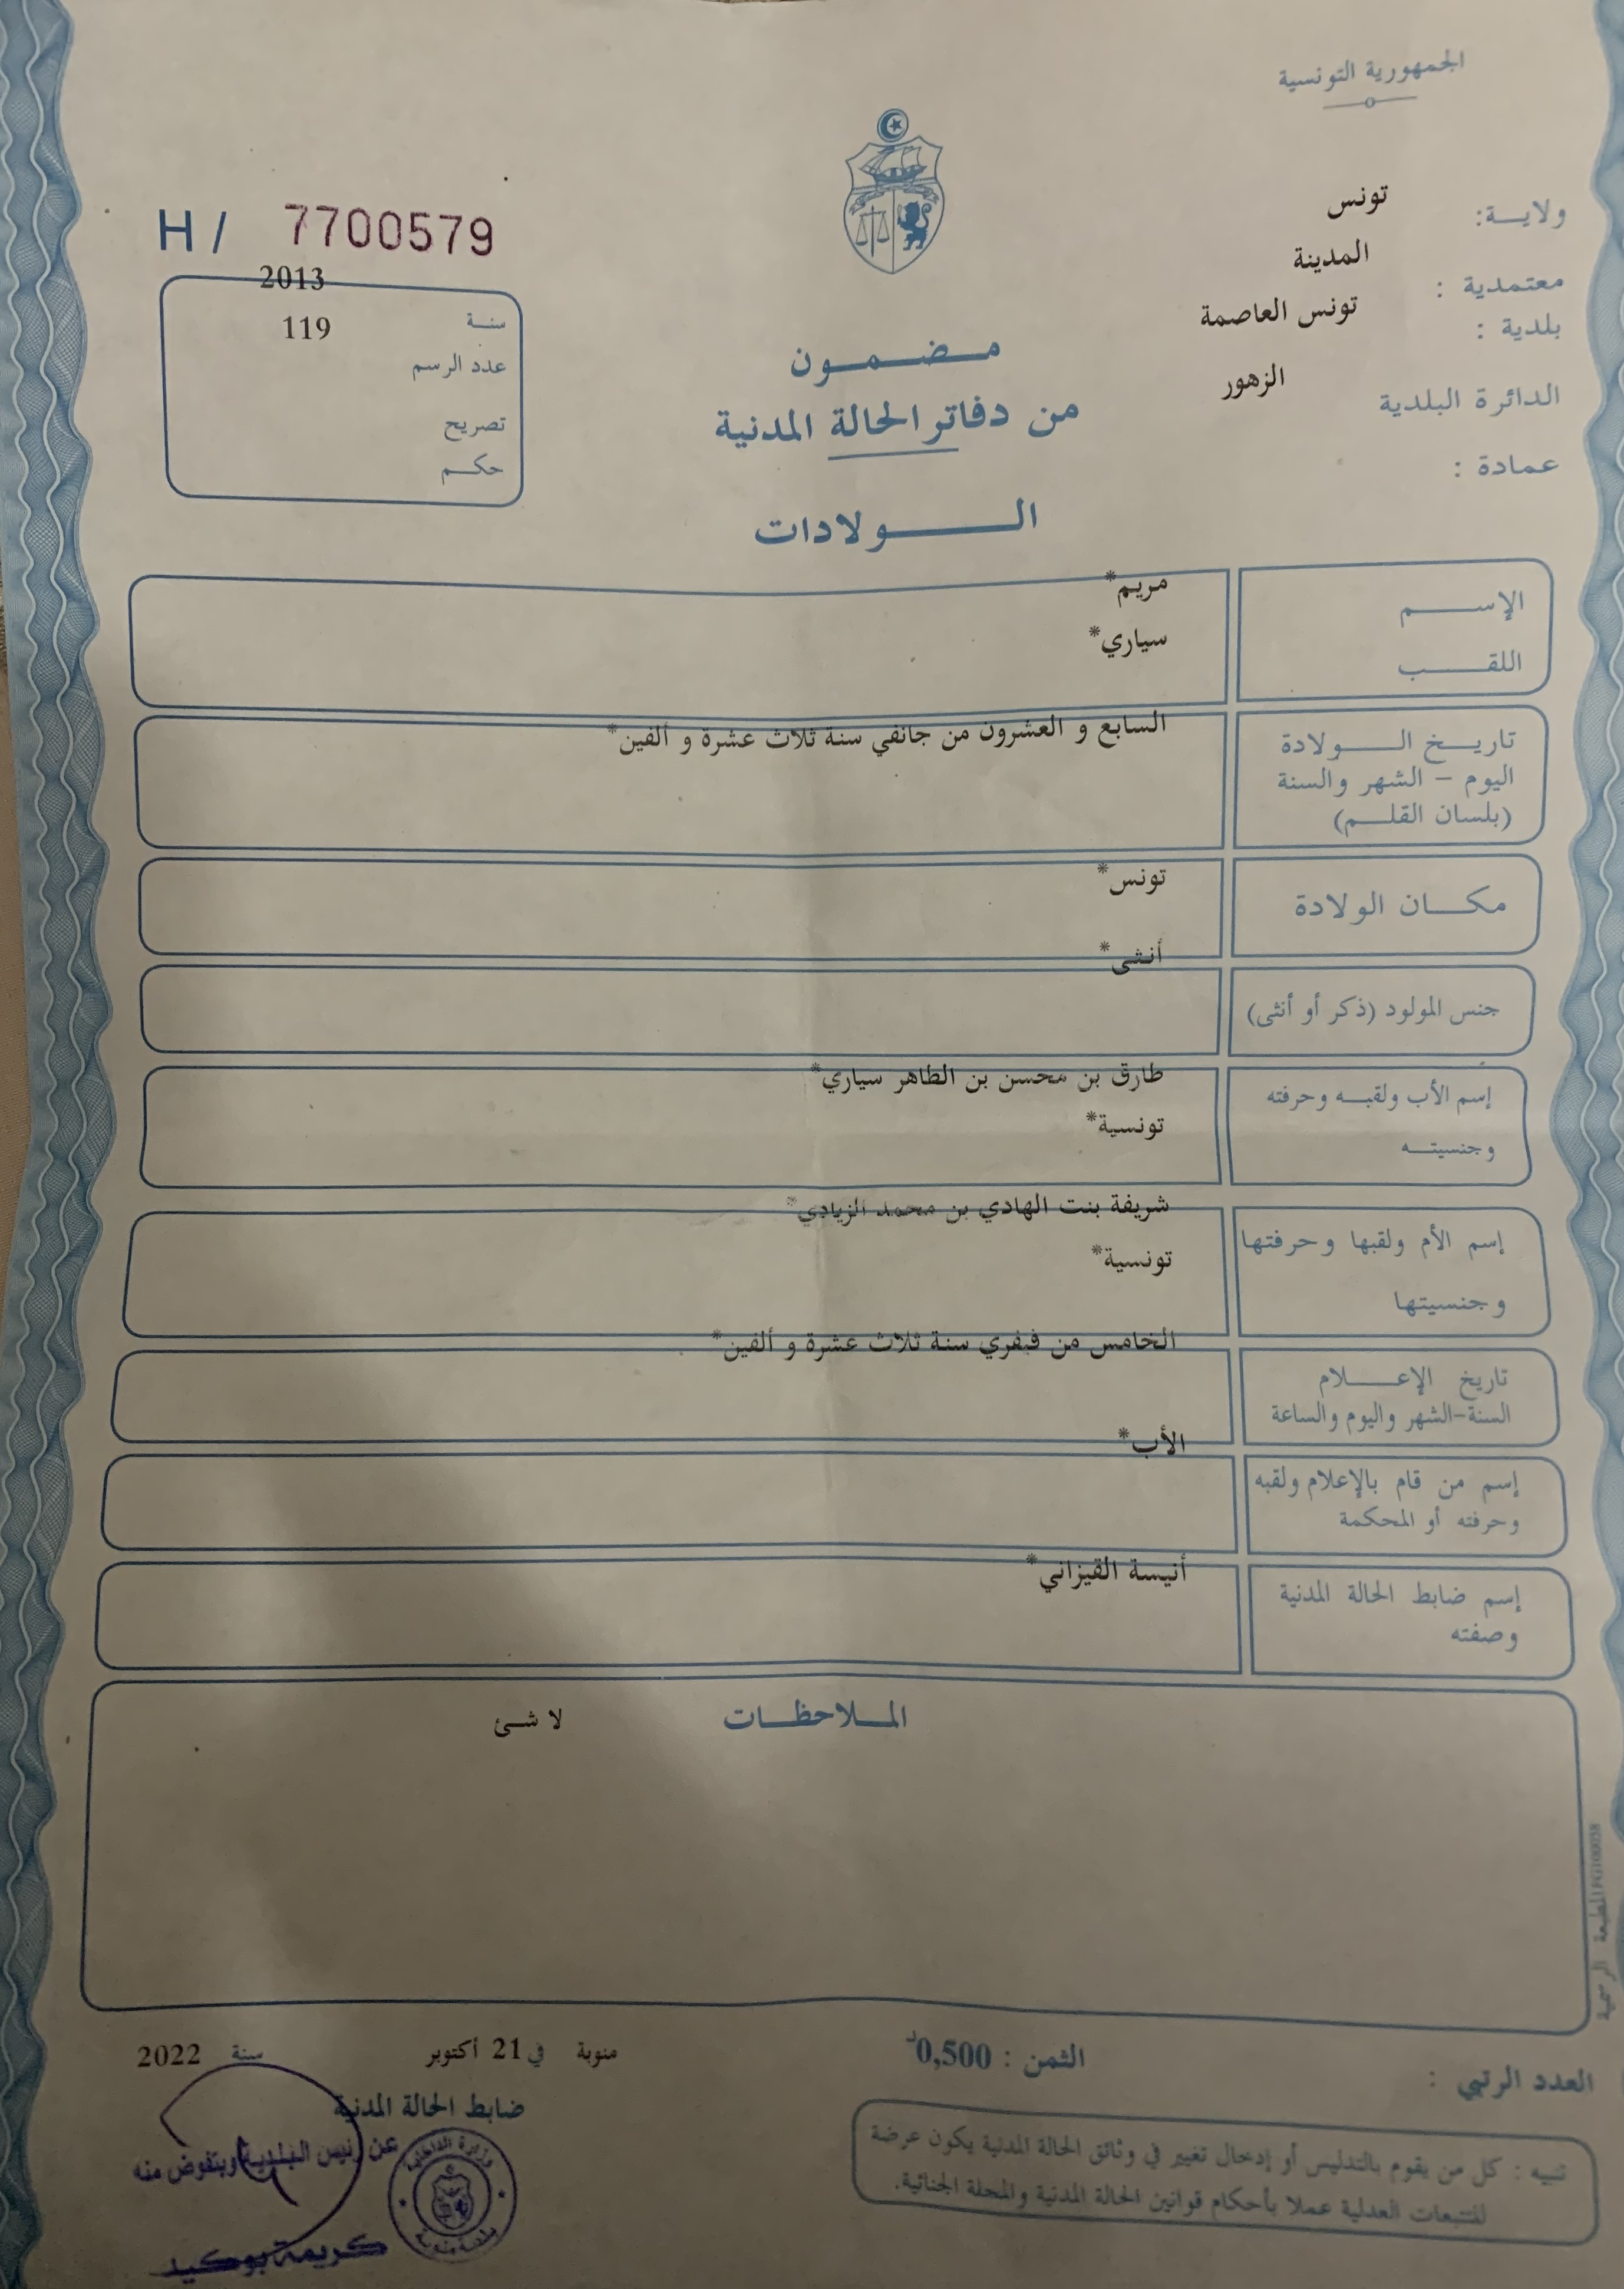 الجمهورية التونسية
ولايـــة: تونس
معتمدية : المدينة
بلدية : تونس العاصمة
الدائرة البلدية الزهور
عمادة :
H/ 7700579
سنـة 2013
عدد الرسم 119
تصريح
حكـم
مـضـمـون
من دفاتر الحالة المدنية
الـــولادات
الإســـم مريم*
اللقـــب سياري*
تاريـخ الـــولادة السابع و العشرون من جانفي سنة ثلاث عشرة و ألفين*
اليوم – الشهر والسنة
(بلسان القلـــم)
مكــان الولادة تونس*
جنس المولود (ذكر أو أنثى) أنثى*
إسم الأب ولقبـه وحرفته طارق بن محسن بن الطاهر سياري*
وجنسيتـه تونسية*
إسم الأم ولقبها وحرفتها شريفة بنت الهادي بن محمد الزيادي*
وجنسيتها تونسية*
تاريخ الإعـــلام الخامس من فيفري سنة ثلاث عشرة و ألفين*
السنة-الشهر واليوم والساعة
إسم من قام بالإعلام ولقبه الأب*
وحرفته أو المحكمة
إسم ضابط الحالة المدنية أنيسة القيزاني*
وصفته
المـلاحظـات لا شئ
المطبعة الرسمية
العدد الرتبي :
الثمن : 0,500د
منوبة في 21 أكتوبر سنة 2022
ضابط الحالة المدنية
عن رئيس البلدية وبتفويض منه
وزارة الداخلية
كريمة بوكيد
تنبيه : كل من يقوم بالتدليس أو إدخال تغيير في وثائق الحالة المدنية يكون عرضة
للتتبعات العدلية عملا بأحكام قوانين الحالة المدنية والمجلة الجنائية.